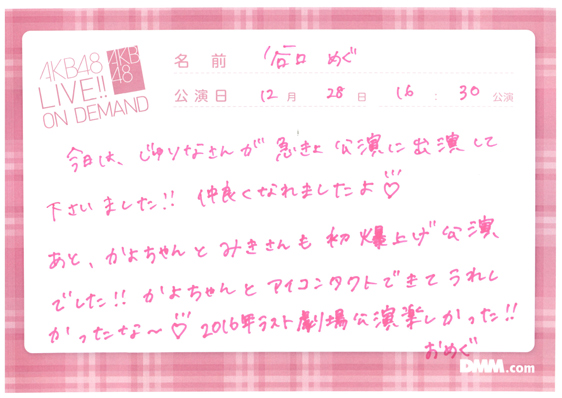 AKB48
LIVE!!
ON DEMAND
AKB
48
名前 谷口 めぐ
公演日 12月 28日 16:30 公演
今日は、じゅりなさんが 急きょ 公演に出演して
下さいました!! 仲良くなれましたよ♡
あと、かよちゃんと みきさんも 初 爆上げ 公演、
でした!! かよちゃんと アイコンタクトできて うれし
かったな〜♡ 2016年ラスト劇場公演楽しかった!!
おめぐ
DMM.com